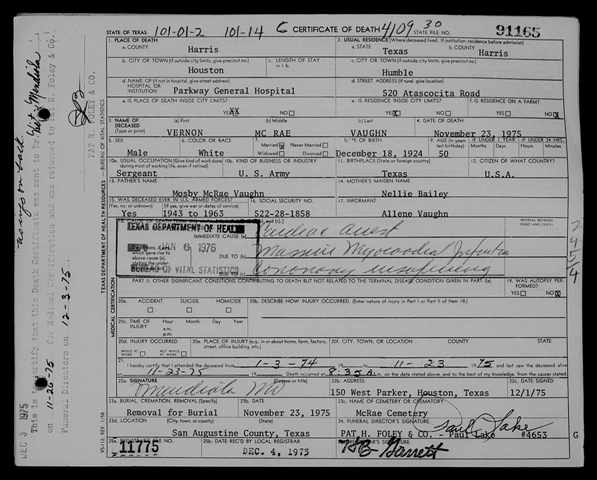 STATE OF TEXAS 101-01-2 101-14 C CERTIFICATE OF DEATH 4109 30 STATE FILE NO. 91165
1. PLACE OF DEATH
2. USUAL RESIDENCE (Where deceased lived. If institution: residence before admission)
a. COUNTY Harris
a. STATE Texas b. COUNTY Harris
b. CITY OR TOWN (If outside city limits, give precinct no.) Houston c. LENGTH OF STAY
c. CITY OR TOWN (If outside city limits, give precinct no.) Humble
d. NAME OF (If not in hospital, give street address) HOSPITAL OR INSTITUTION Parkway General Hospital
d. STREET ADDRESS (If rural, give location) 520 Atascocita Road
e. IS PLACE OF DEATH INSIDE CITY LIMITS? YES XX NO
e. IS RESIDENCE INSIDE CITY LIMITS? YES X NO
f. IS RESIDENCE ON A FARM? YES NO X
3. NAME OF DECEASED (a) First VERNON (b) Middle MC RAE (c) Last VAUGHN
4. DATE OF DEATH November 23, 1975
5. SEX Male
6. COLOR OR RACE White
7. Married Never Married Widowed Divorced
8. DATE OF BIRTH December 18, 1924
9. AGE 50
10a. USUAL OCCUPATION Sergeant
10b. KIND OF BUSINESS OR INDUSTRY U. S. Army
11. BIRTHPLACE (State or foreign country) Texas
12. CITIZEN OF WHAT COUNTRY? U.S.A.
13. FATHER'S NAME Mosby McRae Vaughn
14. MOTHER'S MAIDEN NAME Nellie Bailey
15. WAS DECEASED EVER IN U.S. ARMED FORCES? Yes 1943 to 1963
16. SOCIAL SECURITY NO. 522-28-1858
17. INFORMANT Allene Vaughn
TEXAS DEPARTMENT OF HEALTH
JAN 6 1976
BUREAU OF VITAL STATISTICS
IMMEDIATE CAUSE (a) Cardiac Arrest
DUE TO (b) Massive Myocardial Infarction
DUE TO (c) Coronary insufficiency
PART II. OTHER SIGNIFICANT CONDITIONS CONTRIBUTING TO DEATH BUT NOT RELATED TO THE TERMINAL DISEASE CONDITION GIVEN IN PART I(a)
19. WAS AUTOPSY PERFORMED? YES NO X
20a. ACCIDENT SUICIDE HOMICIDE
20b. DESCRIBE HOW INJURY OCCURRED. (Enter nature of injury in Part I or Part II of item 18.)
20c. TIME OF INJURY Hour Month Day Year a.m. p.m.
20d. INJURY OCCURRED
20e. PLACE OF INJURY (e.g., in or about home, farm, factory, street, office building, etc.)
20f. CITY, TOWN, OR LOCATION COUNTY STATE
21. I hereby certify that I attended the deceased from 1-3-74 to 11-23 1975 and last saw the deceased alive
on 11-23-75 Death occurred at 8:35 a.m. on the date stated above, and to the best of my knowledge, from the causes stated
22a. SIGNATURE Mendiola MD
22b. ADDRESS 150 West Parker, Houston, Texas
22c. DATE SIGNED 12/1/75
23a. BURIAL, CREMATION, REMOVAL (Specify) Removal for Burial
23b. DATE November 23, 1975
23c. NAME OF CEMETERY OR CREMATORY McRae Cemetery
23d. LOCATION (City, town, or county) (State) San Augustine County, Texas
24. FUNERAL DIRECTOR'S SIGNATURE Paul Lake
PAT H. FOLEY & CO. - Paul Lake #4653
11775
25b. DATE REC'D BY LOCAL REGISTRAR DEC. 4, 1975
Garrett
TEXAS DEPARTMENT OF HEALTH RESOURCES — BUREAU OF VITAL STATISTICS
MEDICAL CERTIFICATION
DEC 3 1975
This is to certify that this Death Certificate was sent to Dr. Mendiola
on 11-26-75 for Medical Certification and was returned to Pat H. Foley & Co.
Funeral Directors on 12-3-75.
PAT H. FOLEY & CO.
2454
G